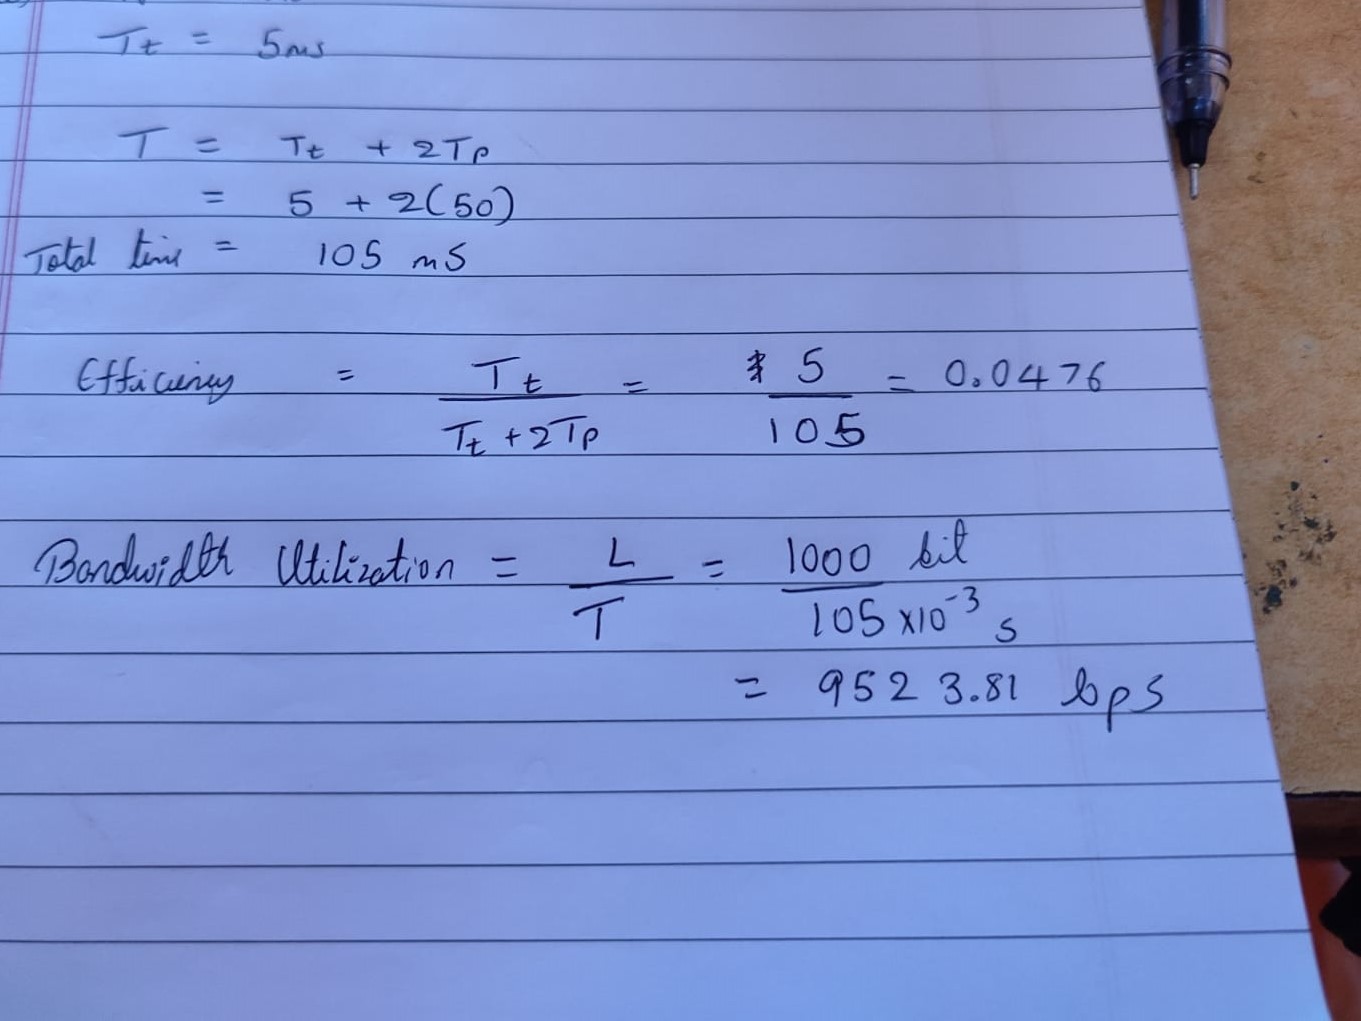 Tt = 5ms
T = Tt + 2Tp
= 5 + 2(50)
Total time = 105 mS
Efficiency = Tt / Tt + 2Tp = 5 / 105 = 0.0476
Bandwidth Utilization = L / T = 1000 bit / 105 x10⁻³ s
= 9523.81 bps